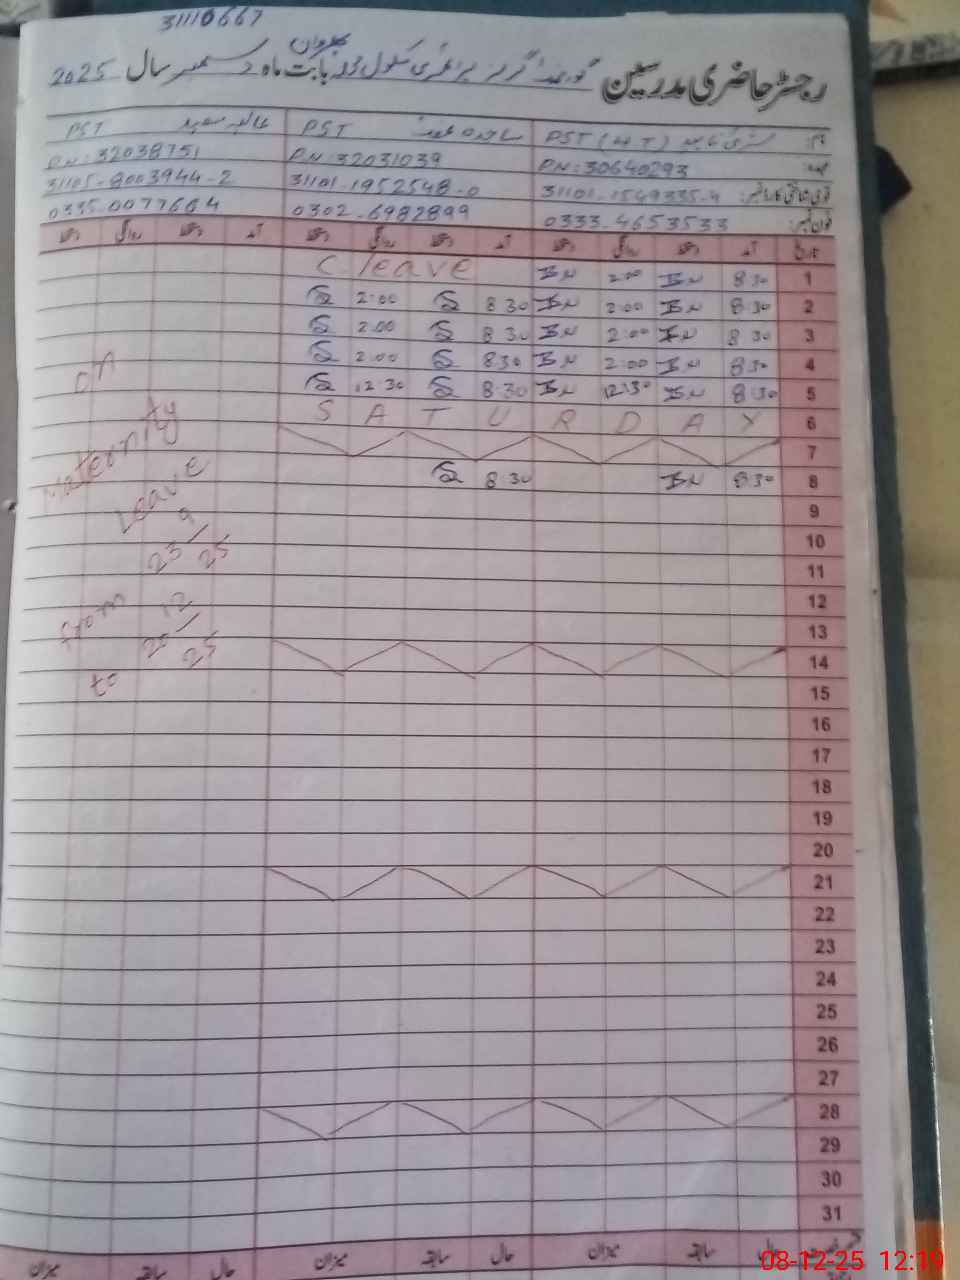 31110667
رجسٹر حاضری مدرسین گورنمنٹ گرلز پرائمری سکول بابت ماہ دسمبر سال 2025
نام: PST (HT) ساجدہ PST عالیہ سعید PST
عہدہ: PN:30640293 PN:32031039 PN:32038751
قومی شناختی کارڈ نمبر: 31101-1549335-4 31101-1952548-0 31105-8003944-2
فون نمبر: 0333-4653533 0302-6982899 0335-0077664
تاریخ آمد دستخط روانگی دستخط آمد دستخط روانگی دستخط آمد دستخط روانگی دستخط
1 8:30 2:00 C leave
2 8:30 2:00 8:30 2:00
3 8:30 2:00 8:30 2:00
4 8:30 2:00 8:30 2:00
5 8:30 12:30 8:30 12:30
6 S A T U R D A Y
7
8 8:30 8:30
9
10
11
12
13
14
15
16
17
18
19
20
21
22
23
24
25
26
27
28
29
30
31
on
Maternity
Leave
23/9/25
from
20/12/25
to
حال سابقہ میزان حال سابقہ میزان حال سابقہ میزان
08-12-25 12:19